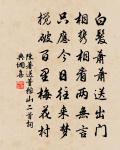 白髮蕭蕭送出門
相將相看兩無言
只應今日往來夢
攪破百里梅花村
陳著送董稼山二首詞
典調集